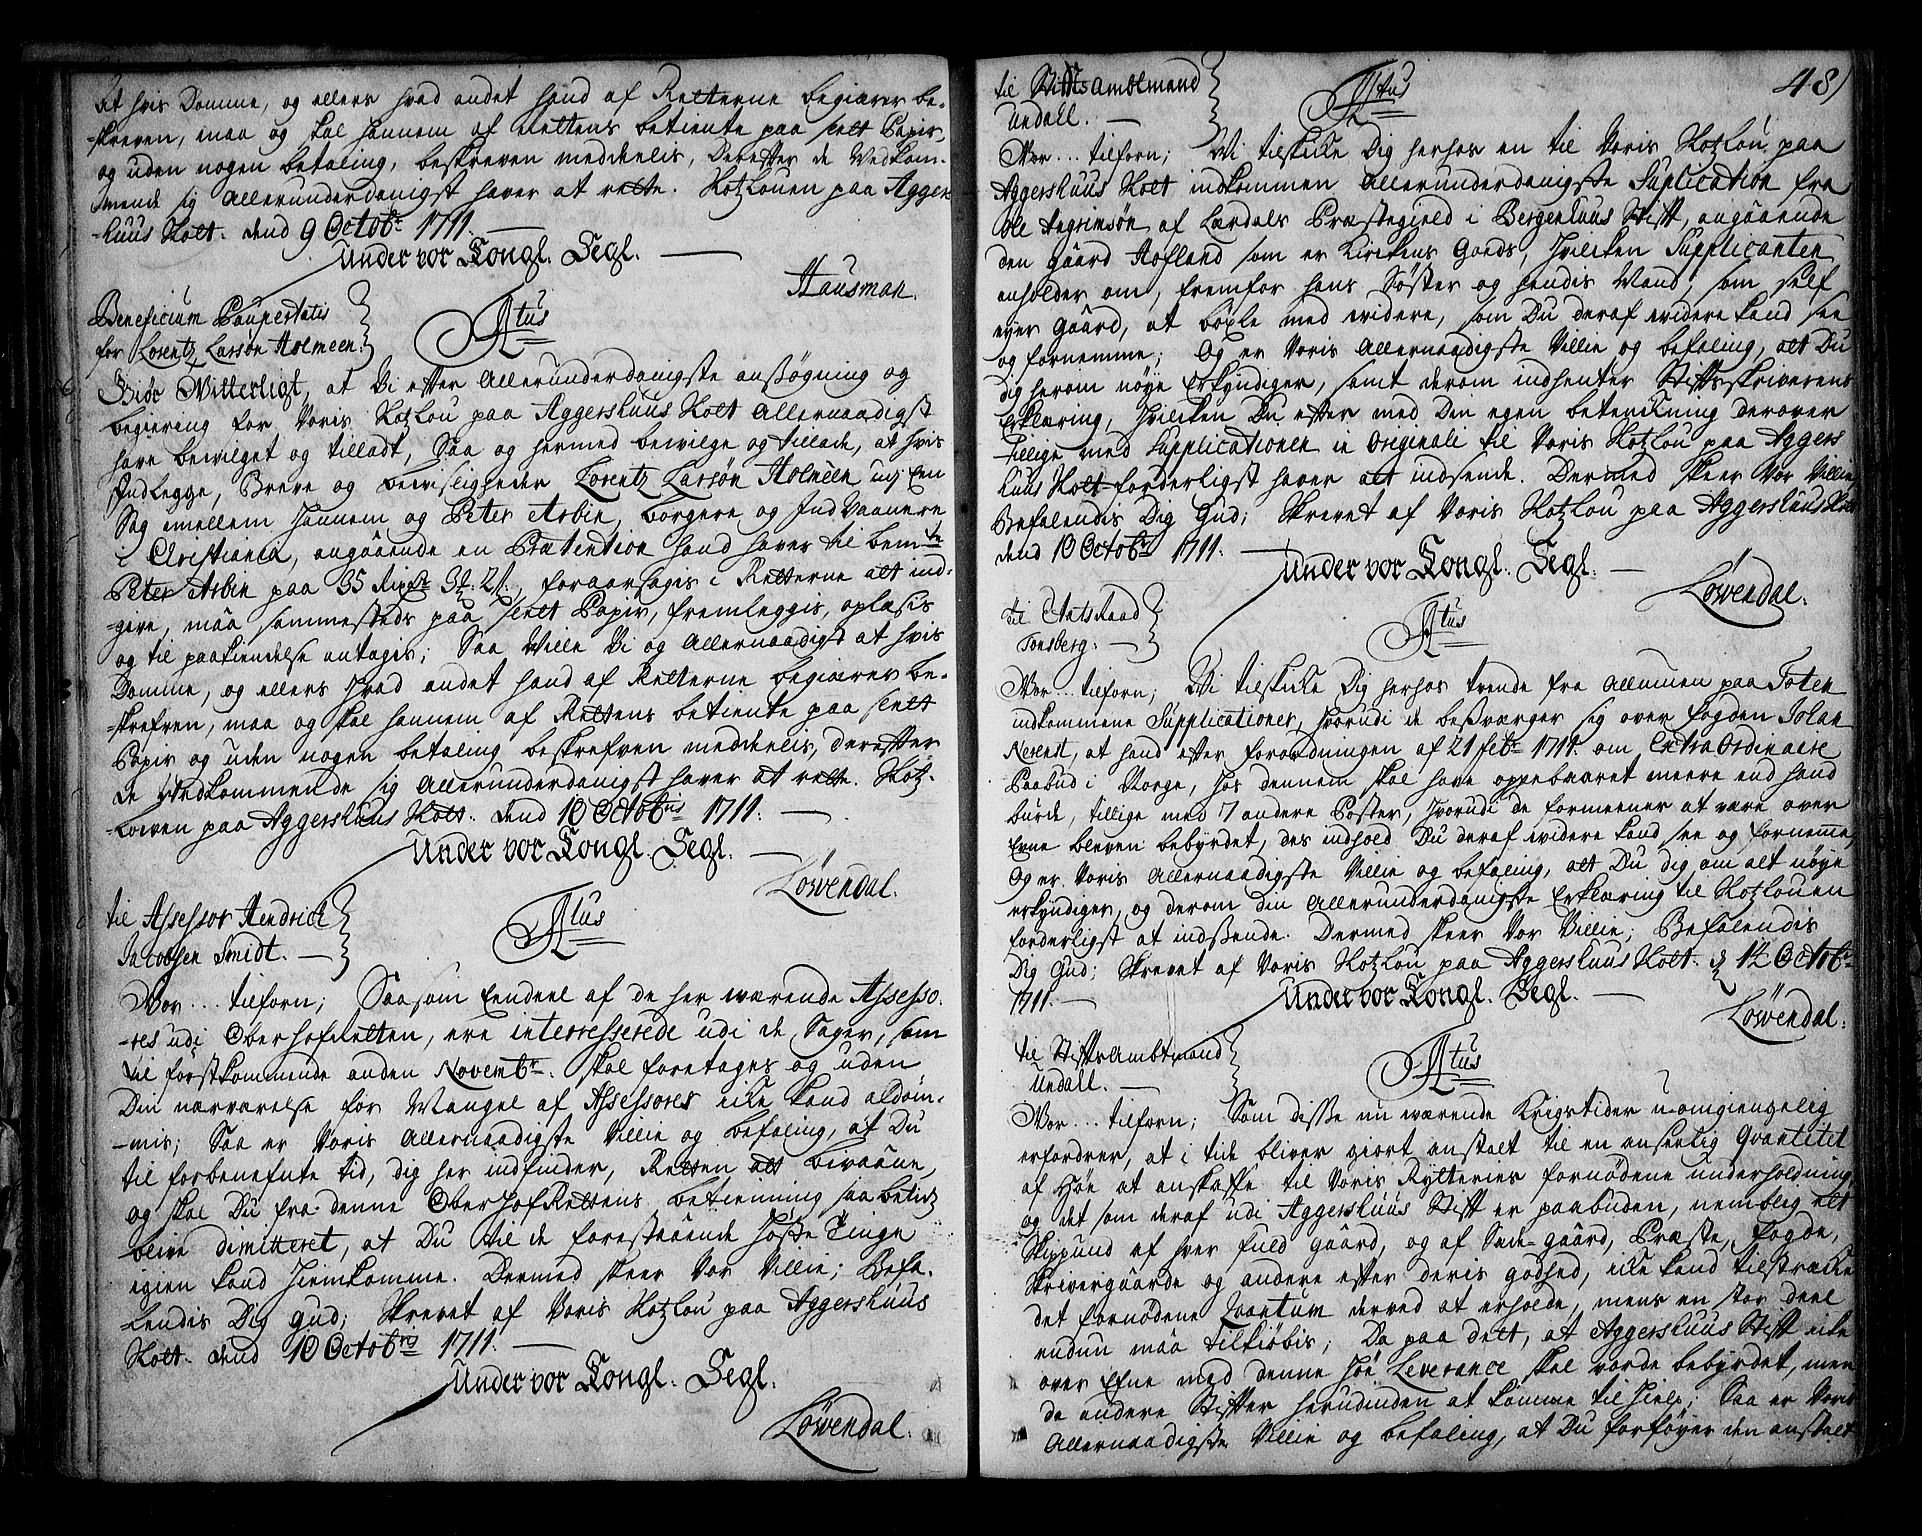 at hvis Domme, og ellers hvad andet hand af Retterne begiærer be-
-skreven, maa og skal hannem af Rettens betiente paa slet Papir,
og uden nogen betaling, beskreven meddeelis, Derefter de Vedkom-
mende sig Allerunderdanigst haver at rette. Hotzlouen paa Aggers
-huus Slott. dend 9 Octobr. 1711.
Under vor Kongl. Segl.
Hausman.
Beneficium Paupertatis
for Lorentz Larsøn Holmeen.
F4tus
Giør Witterligt, at Vi efter Allerunderdanigste ansøgning og
begiering for Voris Hotzlou paa Aggershuus Slott Allernaadigst
have bewilget og tilladt, Saa og hermed bewilge og tillade, at hvis
Indlegge, Breve og bewisligheder Lorentz Larsøn Holmeen udj Een
Sag imellem hannem og Peter Arbin, borgere og IndVaanere
i Christiania, angaaende en Prætention hand haver til bemte
Peter Arbin paa 35 Rixdr 3 2 s., foraarsagis i Retterne at ind-
-give, maa sammesteds paa slet Papir, fremleggis, oplæsis
og til paakiendelse antagis; Saa Ville Vi og Allernaadigst at hvis
Domme, og ellers hvad andet hand af Retterne begiærer be-
-skrefven, maa og skal hannem af Rettens betiente paa slett
Papir og uden nogen betaling beskrefven meddeelis, derefter
de Vedkommende sig Allerunderdanigst haver at rette. Hotz-
-louen paa Aggershuus Slott. dend 10 Octobris 1711.
Under vor Kongl. Segl.
Løwendal.
til Assessor Hendrich
Jacobsen Smidt.
Atus
Wor... tilforn; Saasom Eendeel af de her wærende Assesso-
-res udi OberhofRetten, ere interresserede udi de Sager, som
til førstkommende anden Novembr. skal foretages og uden
Din nærværelse for Mangel af Assessores icke kand aldøm-
-mis; Saa er Voris Allernaadigste Villie og befaling, at Du
til forbenefnte tid, dig her indfinder, Retten at bivaane,
og skal Du fra denne OberhofRettens betienning saa betids
blive dimitteret, at Du til de forestaaende Høste Tinge
igien kand hiemkomme. Dermed skeer Vor Villie; Befa-
-lendis Dig Gud; Skrevet af Voris Hotzlou paa Aggershuus
Slott. dend 10 Octobris 1711.
Under vor Kongl. Segl.
Løwendal.
481
til StiftsAmbtmand
Undall.
Atus
Wor... tilforn; Vi tilskicke Dig herhos en til Voris Hotzlou paa
Aggershuus Slott indkommen Allerunderdanigste Suplication fra
Ole Asgrimsøn af Lærdals Præstegield i Bergenhuus Stift, angaaende
den gaard Hofland som er Kirkens Gods, hvilcken Supplicanten
anholder om, fremfor hans Søster og hendis Mand, som self
ejer Gaard, at böxle med widere, som Du deraf widere kand see
og fornemme; Og er Voris Allernaadigste Villie og befaling, at Du
dig herom nøye Erkyndiger, samt derom indhenter Stiftsskriverens
Erklæring, hvilcken Du efter med Din egen betenckning derover
tillige med Supplicationen in Originali til Voris Hotzlou paa Aggers
huus Slott forderligst haver at indsende. Dermed skeer Vor Villie
Befalendis Dig Gud; Skrevet af Voris Hotzlou paa Aggershuus Slott
dend 10 Octobr. 1711.
Under vor Kongl. Segl.
Løwendal.
til EtatsRaad
Tonsberg.
Atus
Wor... tilforn; Vi tilskicke Dig herhos trende fra Allmuen paa Toten
indkommene Supplicationer, hvorudi de besværger sig over fogden Johan
Nerent, at hand efter forordningen af 21 febr. 1711. om Extra Ordinaire
Paabud i Norge, hos dennem skal have oppebaaret meere end hand
burde, tillige med 7 andere Poster, hvorudi de formeener at være over
Evne bleven bebyrdet, des indhold Du deraf widere kand see og fornemme,
Og er Voris Allernaadigste Villie og befaling, at Du dig om alt nøye
erkyndiger, og derom din Allerunderdanigste Erklæring til Hotzlouen
forderligst at indsende. Dermed skeer Vor Villie; Befalendis
Dig Gud; Skrevet af Voris Hotzlou paa Aggershuus Slott. d 12 Octobr.
1711.
Under vor Kongl. Segl.
Løwendal.
til StiftsAmbtmand
Undall.
Atus
Wor... tilforn; Som disse nu wærende Krigstider uomgiengelig
erfordrer, at i tide bliver giort anstalt til en anseelig Qvantitet
af Høe at anskaffe til Voris Rytteries fornødene underholdning
og det som deraf udi Aggershuus Stift er paabuden, nemblig et
Skippund af hver fuld gaard, og af Sædegaard, Præste, fogde,
Skrivergaarde og andere efter deris godhed, icke kand tilstrække
det fornødene Qvantum derved at erholde, mens en stor deel
endnu maa tilkiøbis; Da paa det, at Aggershuus Stift icke
over Evne med denne høe Leverance skal vorde bebyrdet, men
de andere Stifter herudinden at komme til hielp; Saa er Voris
Allernaadigste Villie og befaling, at Du forføyer den anstalt